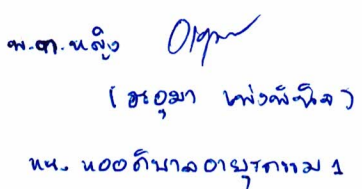 พ.ต.หญิง
(ชะอุมา เพ่งพินิจ)
หน. หออภิบาลอายุรกรรม 1